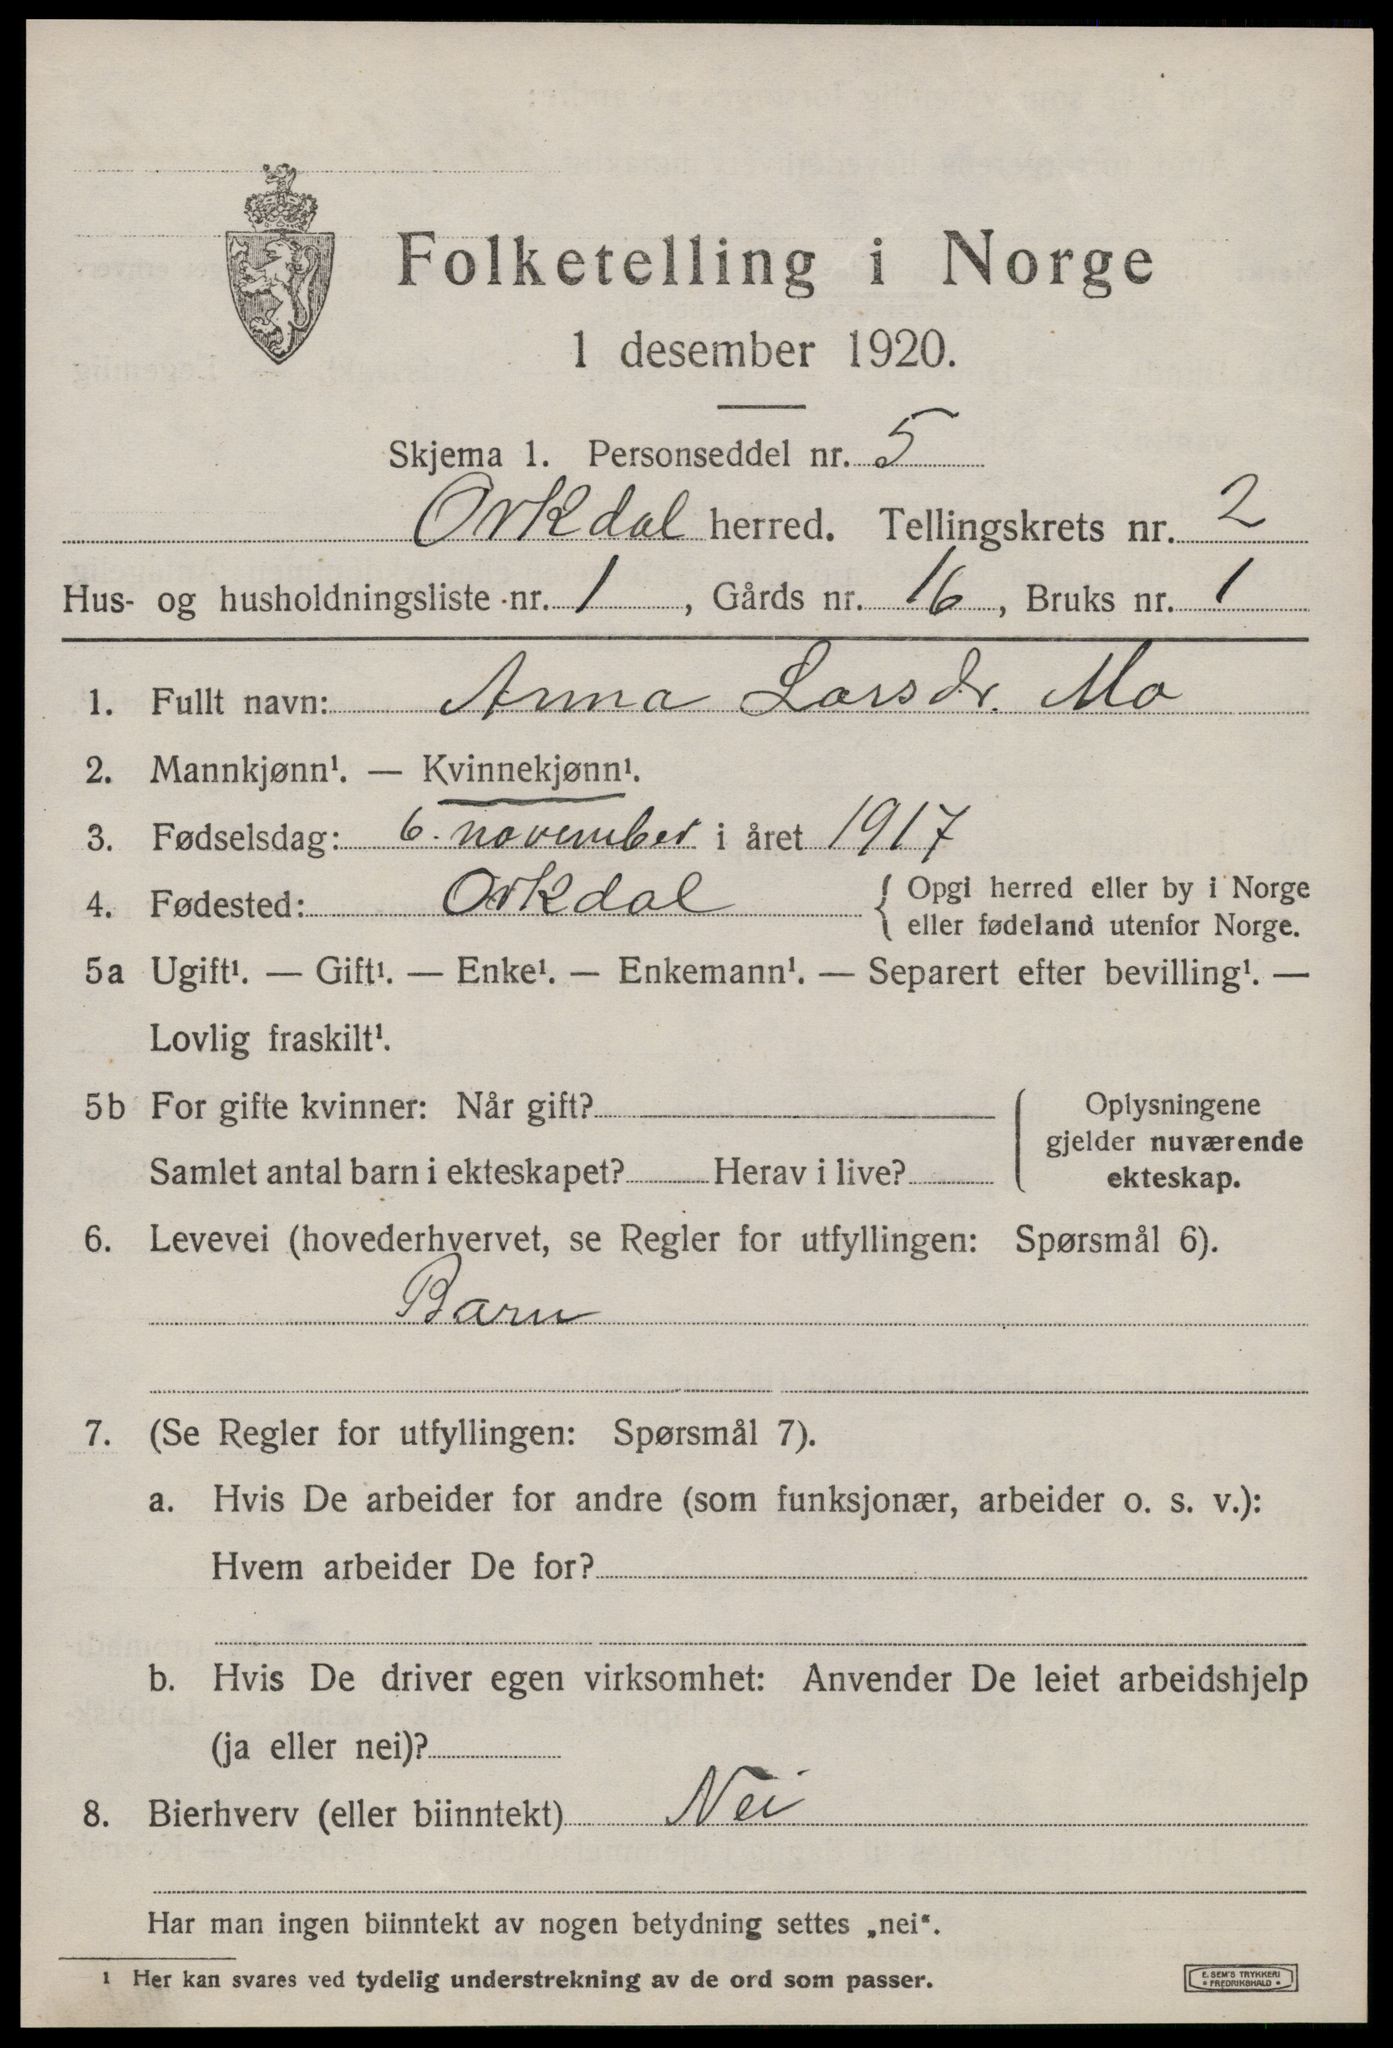 Folketelling i Norge
1 desember 1920.
Skjema 1. Personseddel nr. 5
Orkdal herred. Tellingskrets nr. 2
Hus- og husholdningsliste nr. 1, Gårds nr. 16, Bruks nr. 1
1. Fullt navn: Anna Larsdr. Mo
2. Mannkjønn¹. — Kvinnekjønn¹.
3. Fødselsdag: 6. november i året 1917
4. Fødested: Orkdal { Opgi herred eller by i Norge
eller fødeland utenfor Norge.
5a Ugift¹. — Gift¹. — Enke¹. — Enkemann¹. — Separert efter bevilling¹. —
Lovlig fraskilt¹.
5b For gifte kvinner: Når gift?
Samlet antal barn i ekteskapet? Herav i live?
Oplysningene
gjelder nuværende
ekteskap.
6. Levevei (hovederhvervet, se Regler for utfyllingen: Spørsmål 6).
Barn
7. (Se Regler for utfyllingen: Spørsmål 7).
a. Hvis De arbeider for andre (som funksjonær, arbeider o. s. v.):
Hvem arbeider De for?
b. Hvis De driver egen virksomhet: Anvender De leiet arbeidshjelp
(ja eller nei)?
8. Bierhverv (eller biinntekt) Nei
Har man ingen biinntekt av nogen betydning settes „nei“.
¹ Her kan svares ved tydelig understrekning av de ord som passer.
E. SEM'S TRYKKERI
• FREDRIKSHALD •